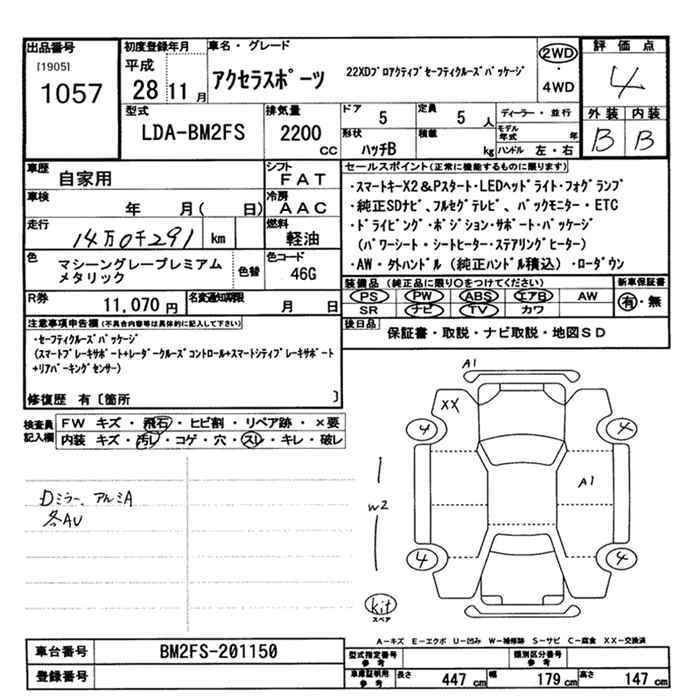 出品番号
[1905]
1057
初度登録年月
平成
28 11月
車名・グレード
アクセラスポーツ 22XDプロアクティブセーフティクルーズパッケージ
2WD
・
4WD
評価点
4
外装 内装
B B
型式
LDA-BM2FS
排気量
2200
cc
ドア
5
定員
5 人
形状
ハッチB
積載
kg
ディーラー・並行
モデル年式 年
ハンドル 左・右
車歴
自家用
シフト
FAT
車検
年 月( 日)
冷房
AAC
走行
14万0千291 km
燃料
軽油
色
マシーングレープレミアム
メタリック
色替
色コード
46G
R券
11,070 円
名変通知期限
月 日
セールスポイント(正常に機能するものに限ります)
・スマートキーX2&Pスタート・LEDヘッドライト・フォグランプ
・純正SDナビ、フルセグテレビ、バックモニター・ETC
・ドライビング・ポジション・サポート・パッケージ
(パワーシート・シートヒーター・ステアリングヒーター)
・AW・外ハンドル(純正ハンドル積込)・ローダウン
装備品(純正品に限り○をつけてください)
PS PW ABS エアB AW
SR ナビ TV カワ
新車保証書
有・無
後日品
保証書・取説・ナビ取説・地図SD
注意事項申告欄(不具合内容等は具体的に記入して下さい)
・セーフティクルーズパッケージ
(スマートブレーキサポート+レーダークルーズコントロール+スマートシティブレーキサポート
+リアパーキングセンサー)
修復歴 有〔箇所 〕
検査員
記入欄
FW キズ・飛石・ヒビ割・リペア跡・×要
内装 キズ・汚レ・コゲ・穴・スレ・キレ・破レ
Dミラー、アルミA
各AU
A1
XX
4
4
A1
W2
4
4
kit
スペア
A-キズ E-エクボ U-凹み W-補修跡 S-サビ C-腐食 XX-交換済
車台番号
BM2FS-201150
登録番号
型式指定番号
参考
類別区分番号
参考
車庫証明用
参考
長さ 447 cm 幅 179 cm 高さ 147 cm